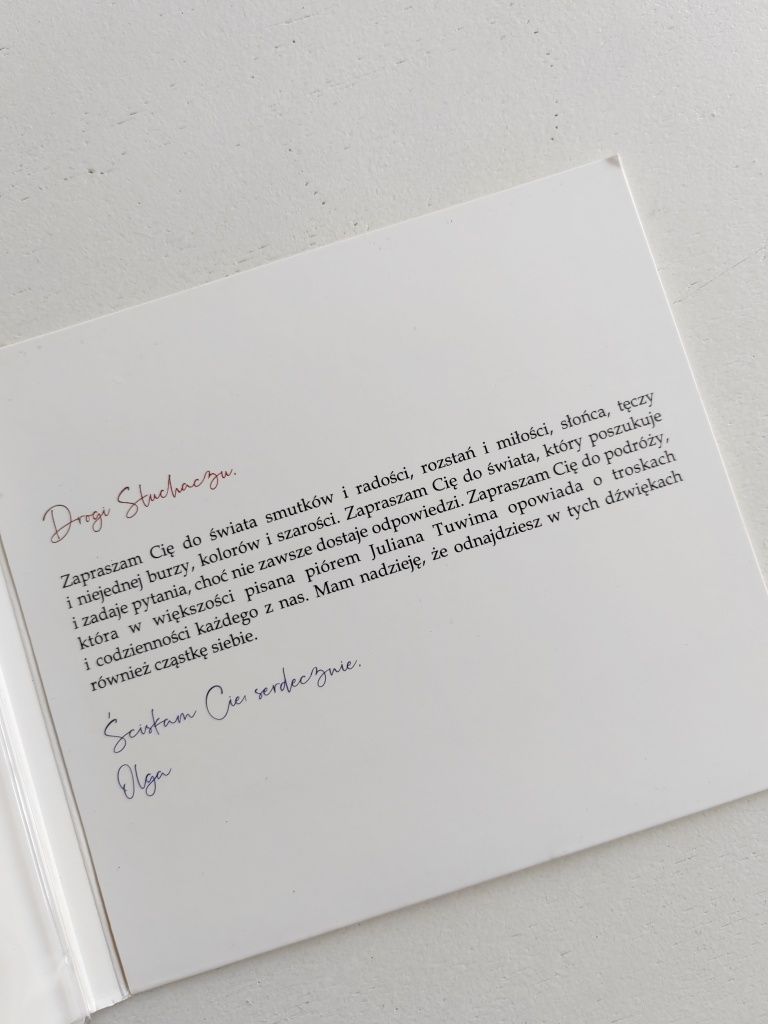 Drogi Słuchaczu.
Zapraszam Cię do świata smutków i radości, rozstań i miłości, słońca, tęczy
i niejednej burzy, kolorów i szarości. Zapraszam Cię do świata, który poszukuje
i zadaje pytania, choć nie zawsze dostaje odpowiedzi. Zapraszam Cię do podróży,
która w większości pisana piórem Juliana Tuwima opowiada o troskach
i codzienności każdego z nas. Mam nadzieję, że odnajdziesz w tych dźwiękach
również cząstkę siebie.
Ściskam Cię serdecznie.
Olga